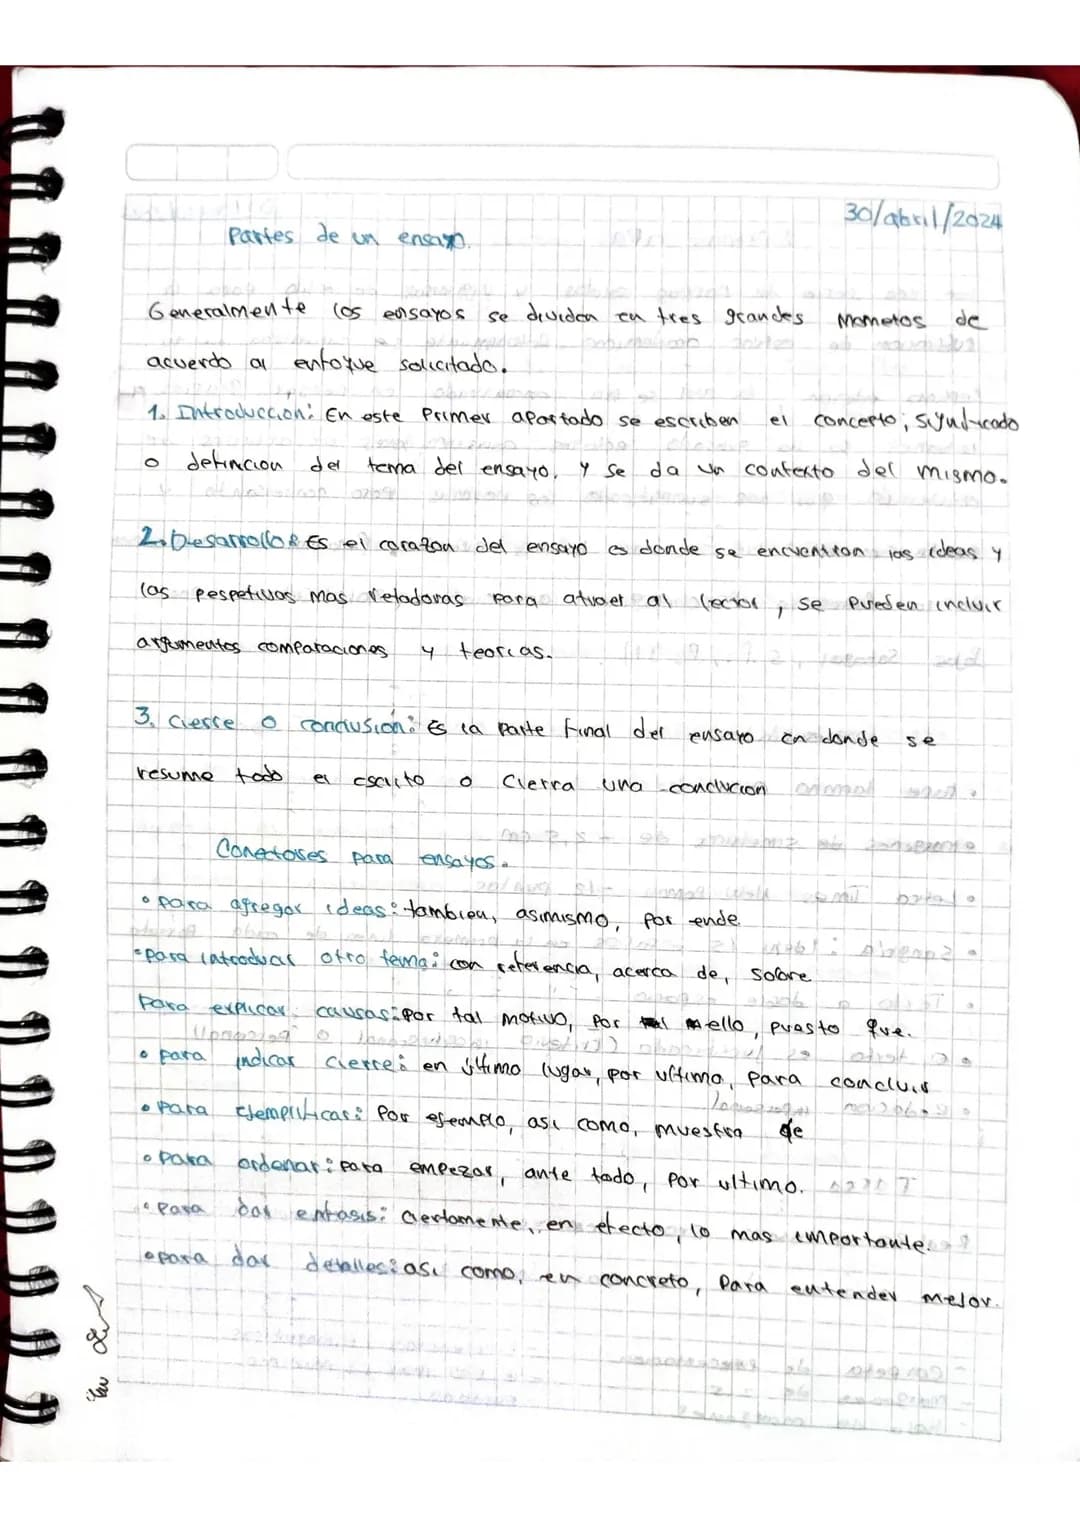 30/abril/2024
Partes de un ensayo.
Generalmente los ensayos se dividen en tres grandes mometos de
acuerdo al enfoque solicitado.
1. Introduccion: En este Primer apartado se escriben el concepto, significado
o defincion del tema del ensayo, y se da un contexto del mismo.
2. Desarrollo: Es el corazon del ensayo es donde se encuentran las ideas y
las pespetivas mas reladoras para atraer al lector, se pueden incluir
argumentos comparaciones y teorias.
3. Cierre o conclusión: Es la parte final del ensayo en donde se
resume todo el escrito o cierra una conclucion
Conectores para ensayos.
• para agregar ideas: tambien, asimismo, por ende
• para introducir otro tema: con referencia, acerca de, sobre
Para explicar causas: por tal motivo, por ello, puesto que.
• para indicar cierre: en último lugar, por ultimo, para concluir
• Para ejemplificar: Por ejemplo, asi como, muestra de
• Para ordenar: para empezar, ante todo, por ultimo.
• Para dar enfasis: ciertamente, en efecto, lo mas importante.
• para dar detalles: asi como, en concreto, Para entender mejor.